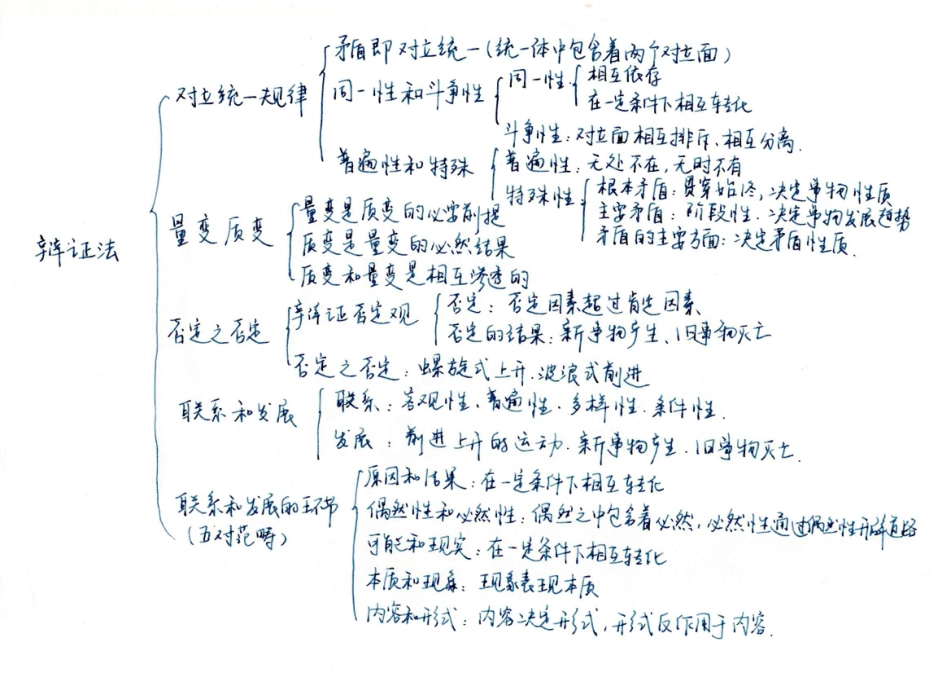 辩证法
对立统一规律
矛盾即对立统一(统一体中包含着两个对立面)
同一性和斗争性
同一性
相互依存
在一定条件下相互转化
斗争性:对立面相互排斥、相互分离.
普遍性和特殊
普遍性:无处不在,无时不有
特殊性
根本矛盾:贯穿始终,决定事物性质
主要矛盾:阶段性.决定事物发展趋势
矛盾的主要方面:决定矛盾性质.
量变质变
量变是质变的必要前提
质变是量变的必然结果
质变和量变是相互渗透的
否定之否定
辩证否定观
否定:否定因素超过肯定因素
否定的结果:新事物产生、旧事物灭亡
否定之否定:螺旋式上升.波浪式前进
联系和发展
联系:客观性、普遍性.多样性.条件性.
发展:前进上升的运动.新事物产生.旧事物灭亡.
联系和发展的环节
(五对范畴)
原因和结果:在一定条件下相互转化
偶然性和必然性:偶然之中包含着必然,必然性通过偶然性开辟道路
可能和现实:在一定条件下相互转化
本质和现象:现象表现本质
内容和形式:内容决定形式,形式反作用于内容.